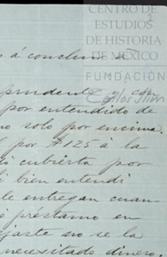 CENTRO DE
ESTUDIOS
DE HISTORIA
DE MÉXICO
FUNDACIÓN
Carlos Slim
á concluir
prudente y con
por entendido de
no solo por encima
por $125 á la
cubierta por
bien entendí
le entregan cuan
préstamo en
no se la
necesitado dinero